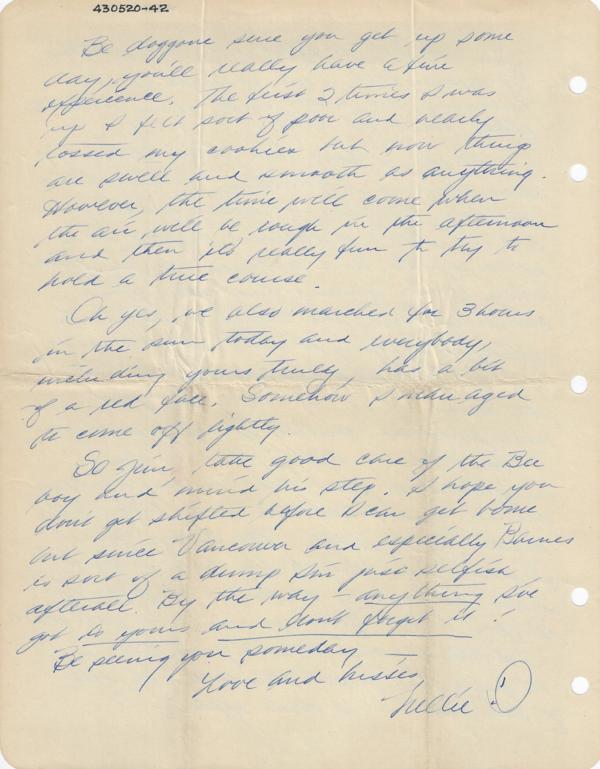 430520-42
Be doggone sure you get up some
day, you'll really have a fine
experience. The first 2 times I was
up I felt sort of poor and nearly
tossed my cookies but now things
are swell and smooth as anything.
However, the time will come when
the air will be rough in the afternoon
and then it's really fun to try to
hold a true course.
Oh yes, we also marched for 3 hours
in the sun today and everybody,
including yours truly, has a bit
of a red face. Somehow I managed
to come off lightly.
So Jim, take good care of the Bee
boy and mind his step. I hope you
don't get shifted before I can get home
but since Vancouver and especially Barnes
is sort of a dump I'm just selfish
afterall. By the way - anything I've
got is yours and don't forget it!
Be seeing you someday
Love and kisses,